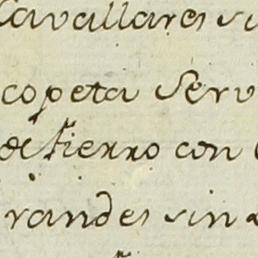 Cavallares
copeta
de fierro con
randes sin